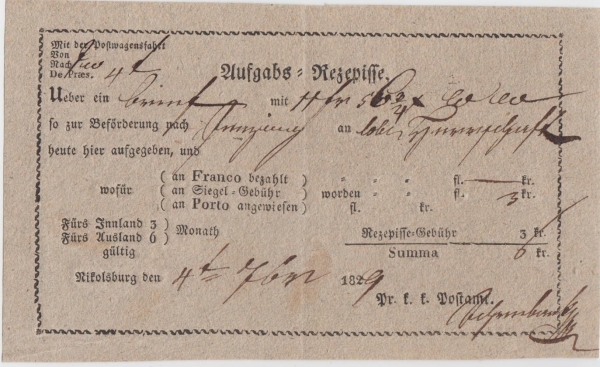 Mit der Postwagensfahrt
Von
Nach
De Præs. 4t
Aufgabs = Rezepisse.
Ueber ein Brief mit
so zur Beförderung nach an löbl. Herrschaft
heute hier aufgegeben, und
wofür
( an Franco bezahlt ) " " " fl. — kr.
( an Siegel-Gebühr ) worden " " fl. 3 kr.
( an Porto angewiesen ) fl. kr.
Fürs Innland 3 )
Fürs Ausland 6 ) Monath
gültig
Rezepisse-Gebühr 3 kr.
Summa 6 kr.
Nikolsburg den 4t 7br 1829
Pr. k. k. Postamt.